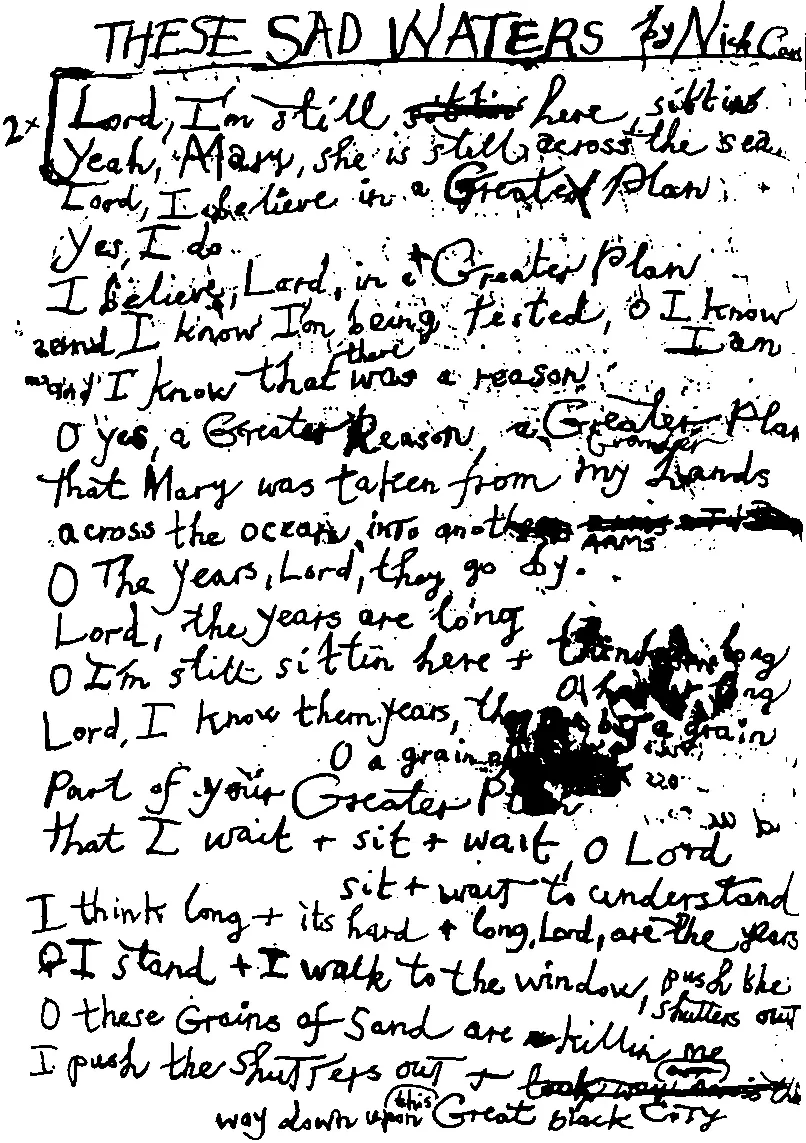 THESE SAD WATERS by Nick Cave
2x
Lord, I'm still here, sittin
Yeah, Mary, she is still across the sea
Lord, I believe in a Greater Plan
Yes, I do
I believe, Lord, in a Greater Plan
and I know I'm being tested, O I know
I am
and I know that there was a reason
O yes, a Greater Reason, a Greater Plan
that Mary was taken from my hands
across the ocean, into another
ARMS
O The years, Lord, they go by.
Lord, the years are long
O I'm still sittin here + long
O long
Lord, I know them years, a grain
O a grain
Part of your Greater Plan
that I wait + sit + wait, O Lord
sit + wait to understand
I think long + its hard + long, Lord, are the years
O I stand + I walk to the window, push the
shutters out
O these Grains of Sand are killin me
I push the shutters out +
way down upon this Great black City